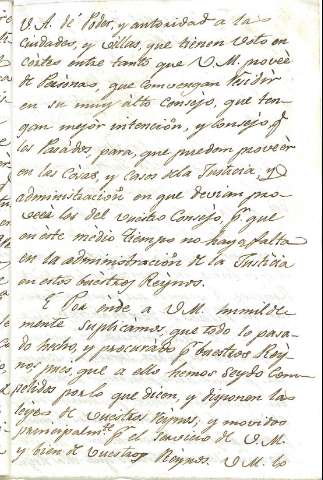 V. A. dé Poder, y autoridad a las
ciudades, y villas, que tienen Voto en
cortes entre tanto que V. M. proveé
de Personas, que combengan Residir
en su muy alto Consejo, que ten-
gan mejor intención, y consejo, q
los Pasados, para, que puedan proveér
en las Cosas, y casos de la Justicia, y
administración en que devian pro-
veér los del Vuestro Consejo, pr. que
en éste médio tiempo no haya falta
en la administración de la Justicia
en estos buéstros Reynos.
E Por énde a V. M. humilde-
mente suplicamos, que todo lo pasa-
do hecho, y procurado pr buestros Rey-
nos pues, que a ello hemos seydo Com-
pelidos por lo que dicen, y disponen las
leyes de Vuestros Reynos, y movidos
principalmte. pr. el servicio de V. M.
y bien de Vuestros Reynos. V. M. lo